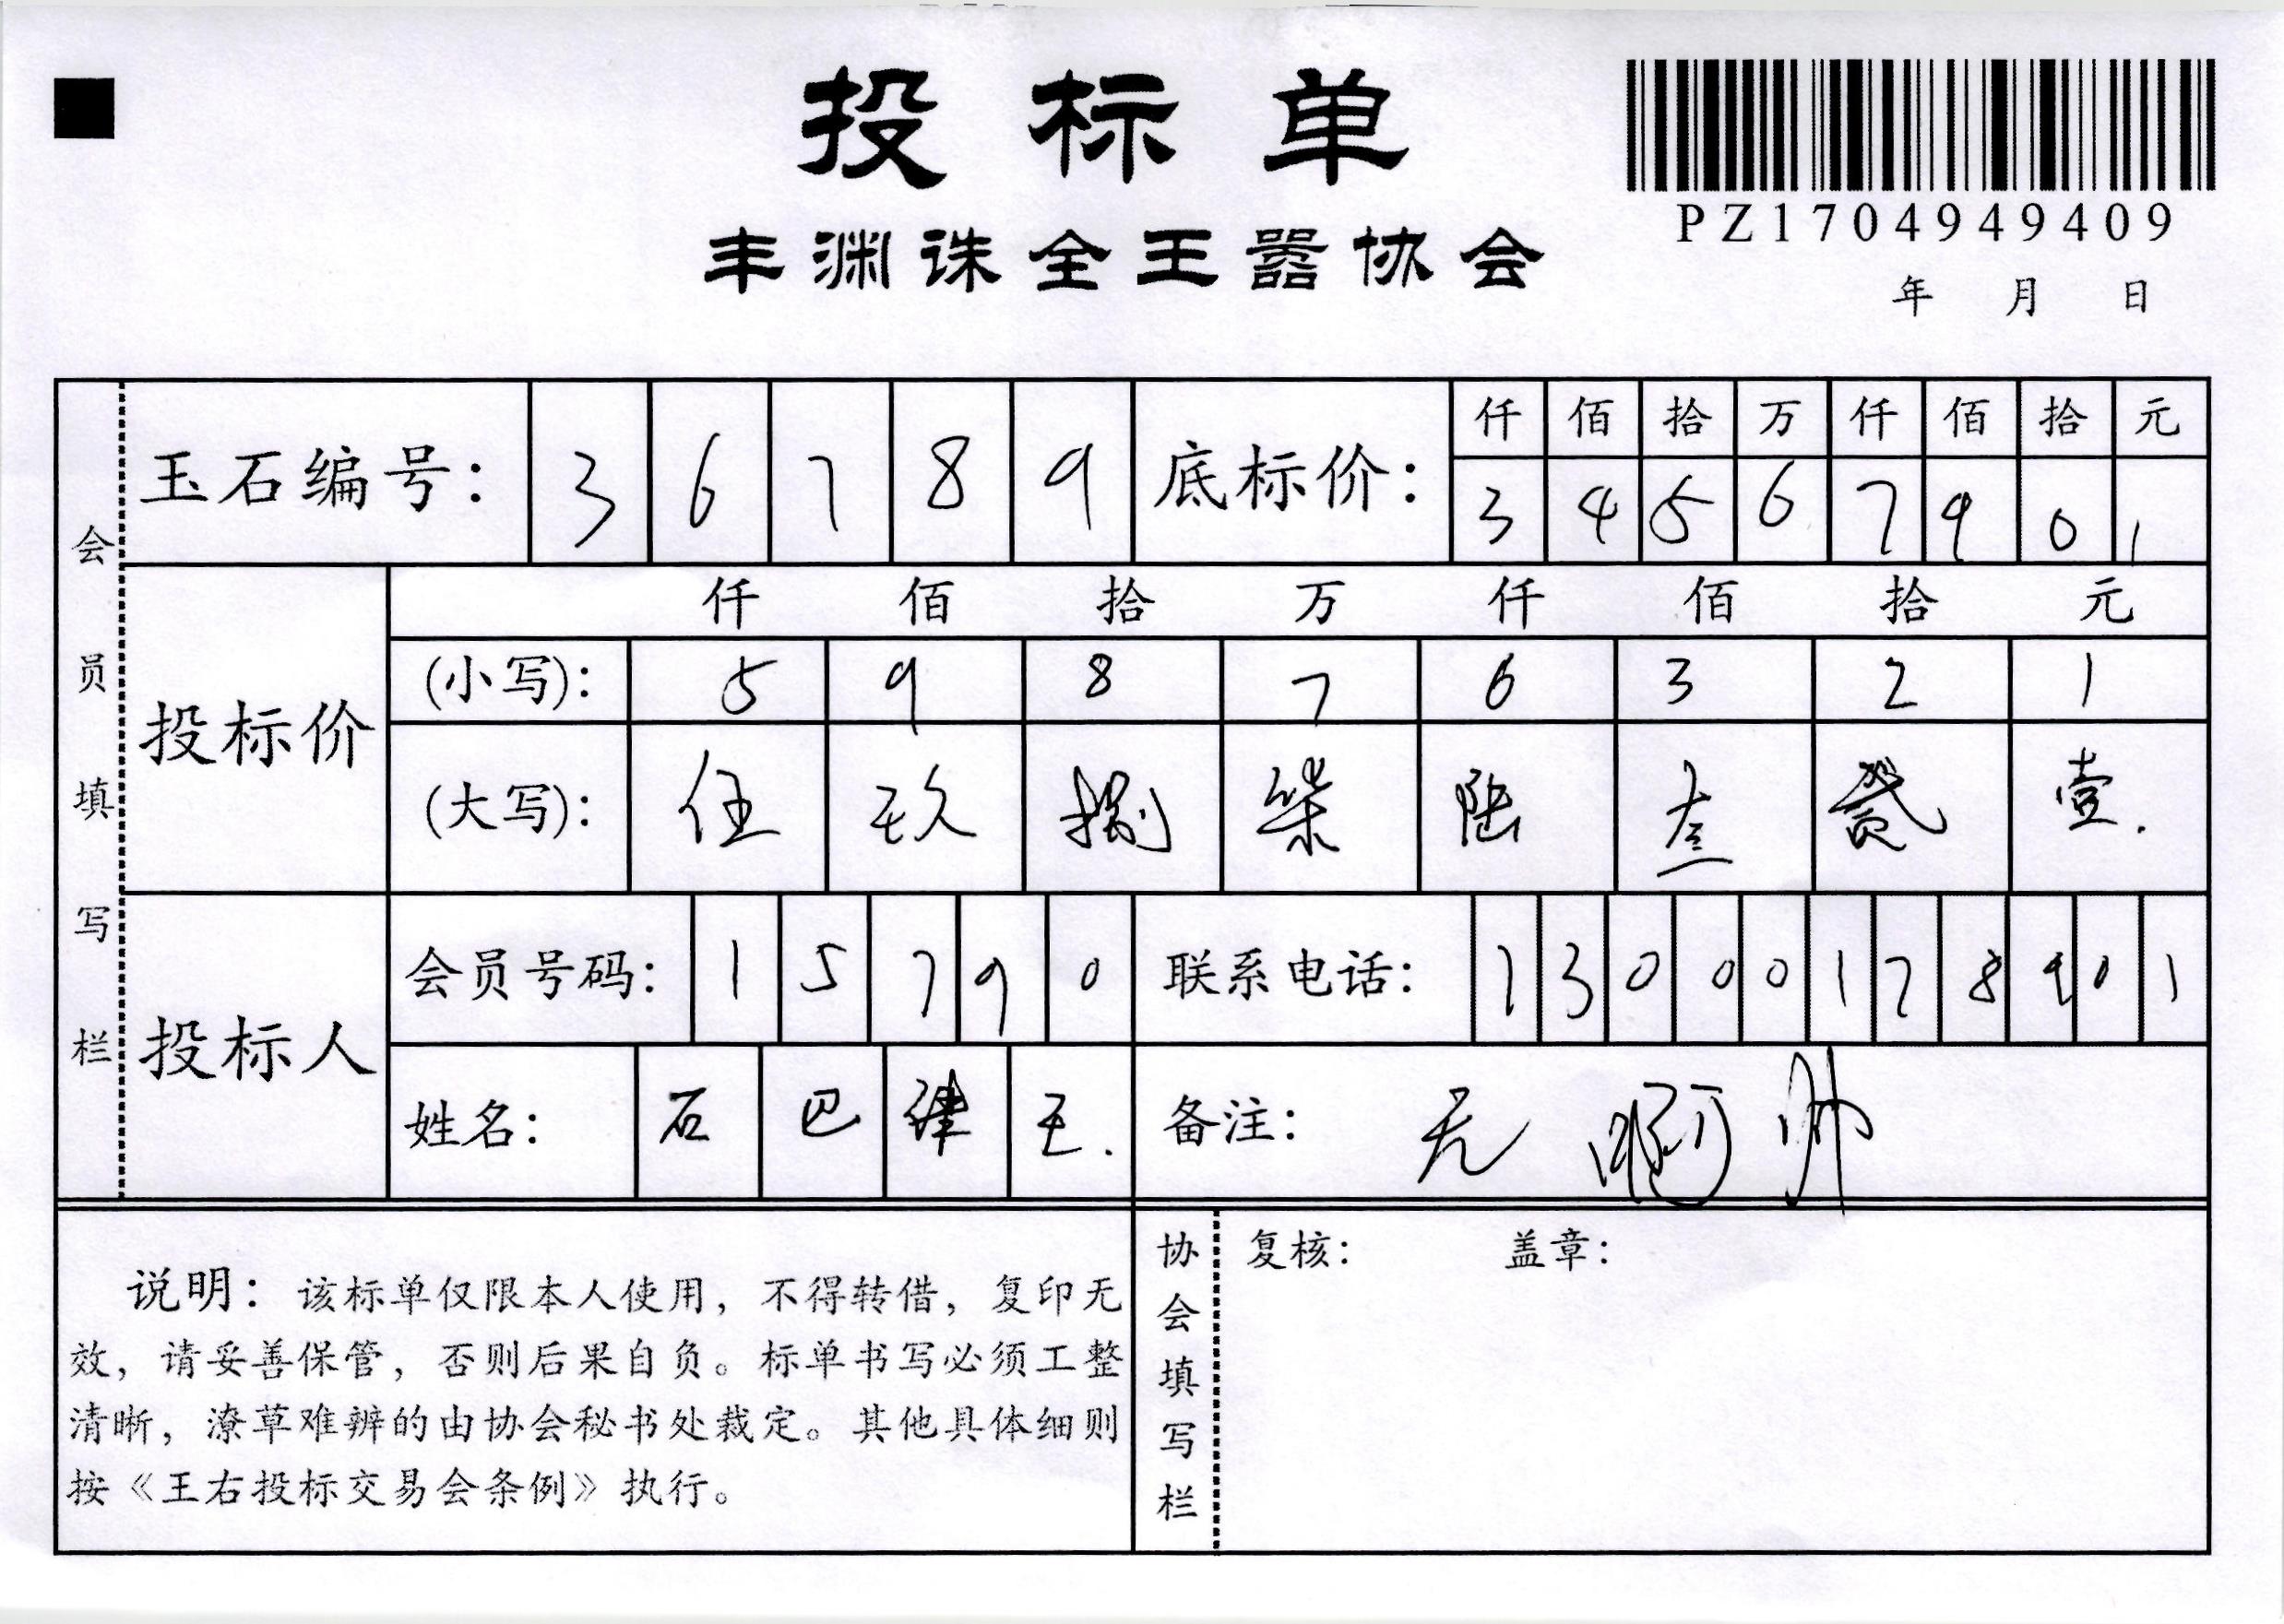 投标单
PZ1704949409
丰渊诛全王嚣协会
年 月 日
会员填写栏
玉石编号: 3 6 7 8 9
底标价: 仟 佰 拾 万 仟 佰 拾 元
3 4 5 6 7 9 0 1
投标价
仟 佰 拾 万 仟 佰 拾 元
(小写): 5 9 8 7 6 3 2 1
(大写): 伍 玖 捌 柒 陆 叁 贰 壹.
投标人
会员号码: 1 5 7 9 0
联系电话: 1 3 0 0 0 1 7 8 9 0 1
姓名: 石 巴 肆 王.
备注: 无 啊 帅
说明: 该标单仅限本人使用, 不得转借, 复印无
效, 请妥善保管, 否则后果自负。标单书写必须工整
清晰, 潦草难辨的由协会秘书处裁定。其他具体细则
按《王右投标交易会条例》执行。
协会填写栏
复核: 盖章: